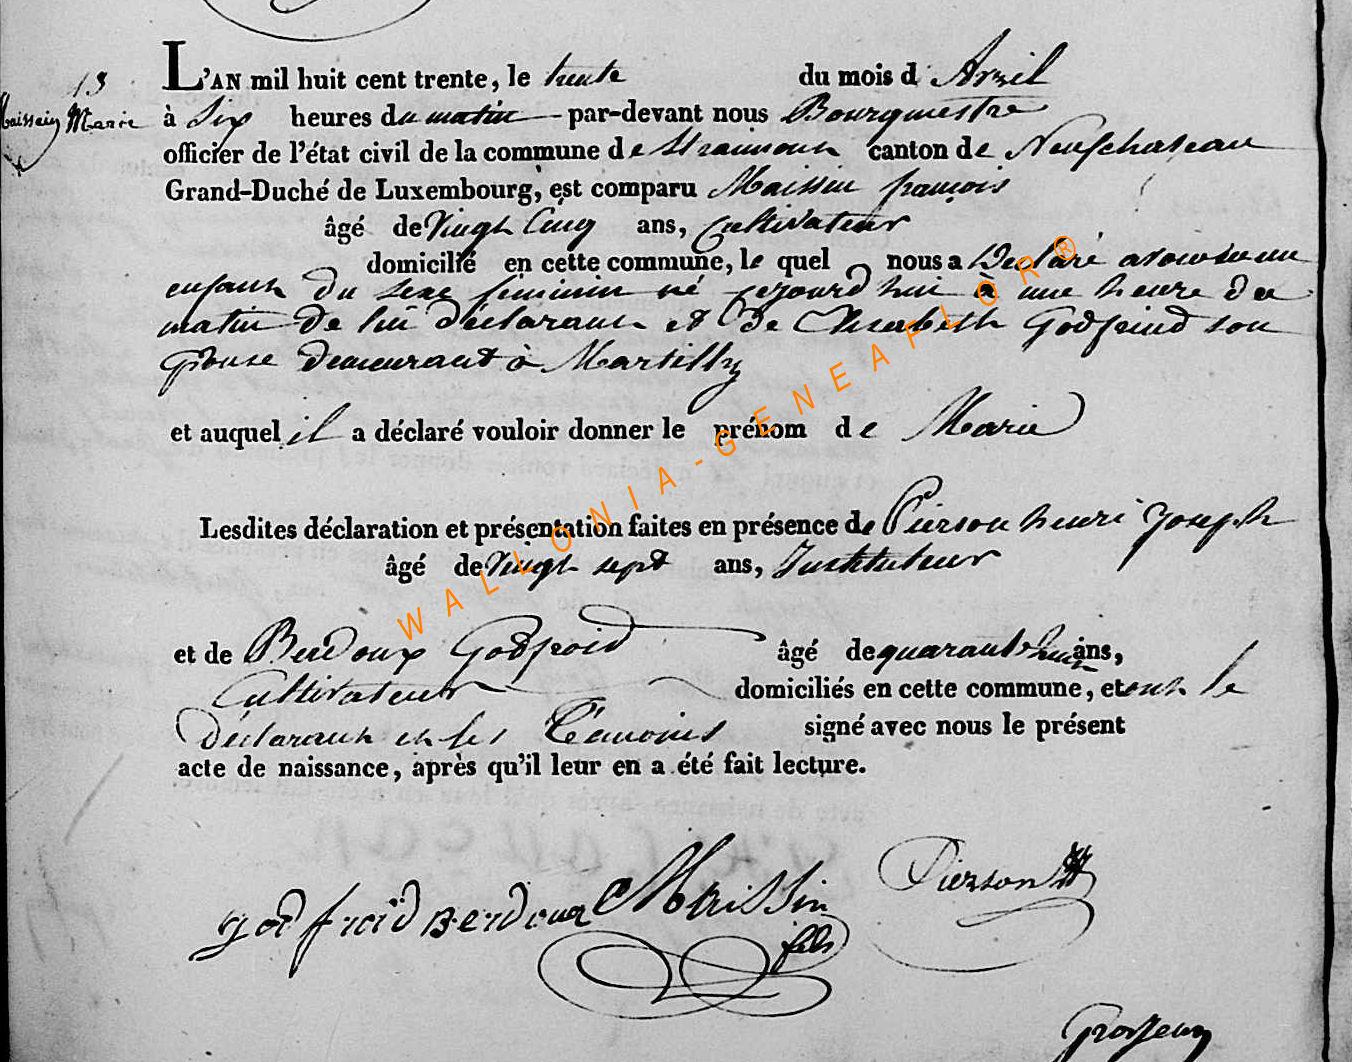 13
Maissin Marie
L'AN mil huit cent trente, le trente du mois d'Avril
à Six heures du matin par-devant nous Bourgmestre
officier de l'état civil de la commune de Straimont canton de Neufchateau
Grand-Duché de Luxembourg, est comparu Maissin françois
âgé de Vingt Cinq ans, Cultivateur
domicilié en cette commune, le quel nous a Declaré avoir eu un
enfant du sexe feminin né cejourd'hui à une heure du
matin de lui déclarant et de Elisabeth Godfrind son
epouse demeurant à Martilly
et auquel il a déclaré vouloir donner le prénom de Marie
Lesdites déclaration et présentation faites en présence de Pierson henri Joseph
âgé de Vingt sept ans, Instituteur
et de Berdoux Godfroid âgé de quarante huit ans,
Cultivateur domiciliés en cette commune, et ont le
Déclarant et les Témoins signé avec nous le présent
acte de naissance, après qu'il leur en a été fait lecture.
godfroid Berdoux Maissin Pierson
fils
WALLONIA-GENEAFLOR®